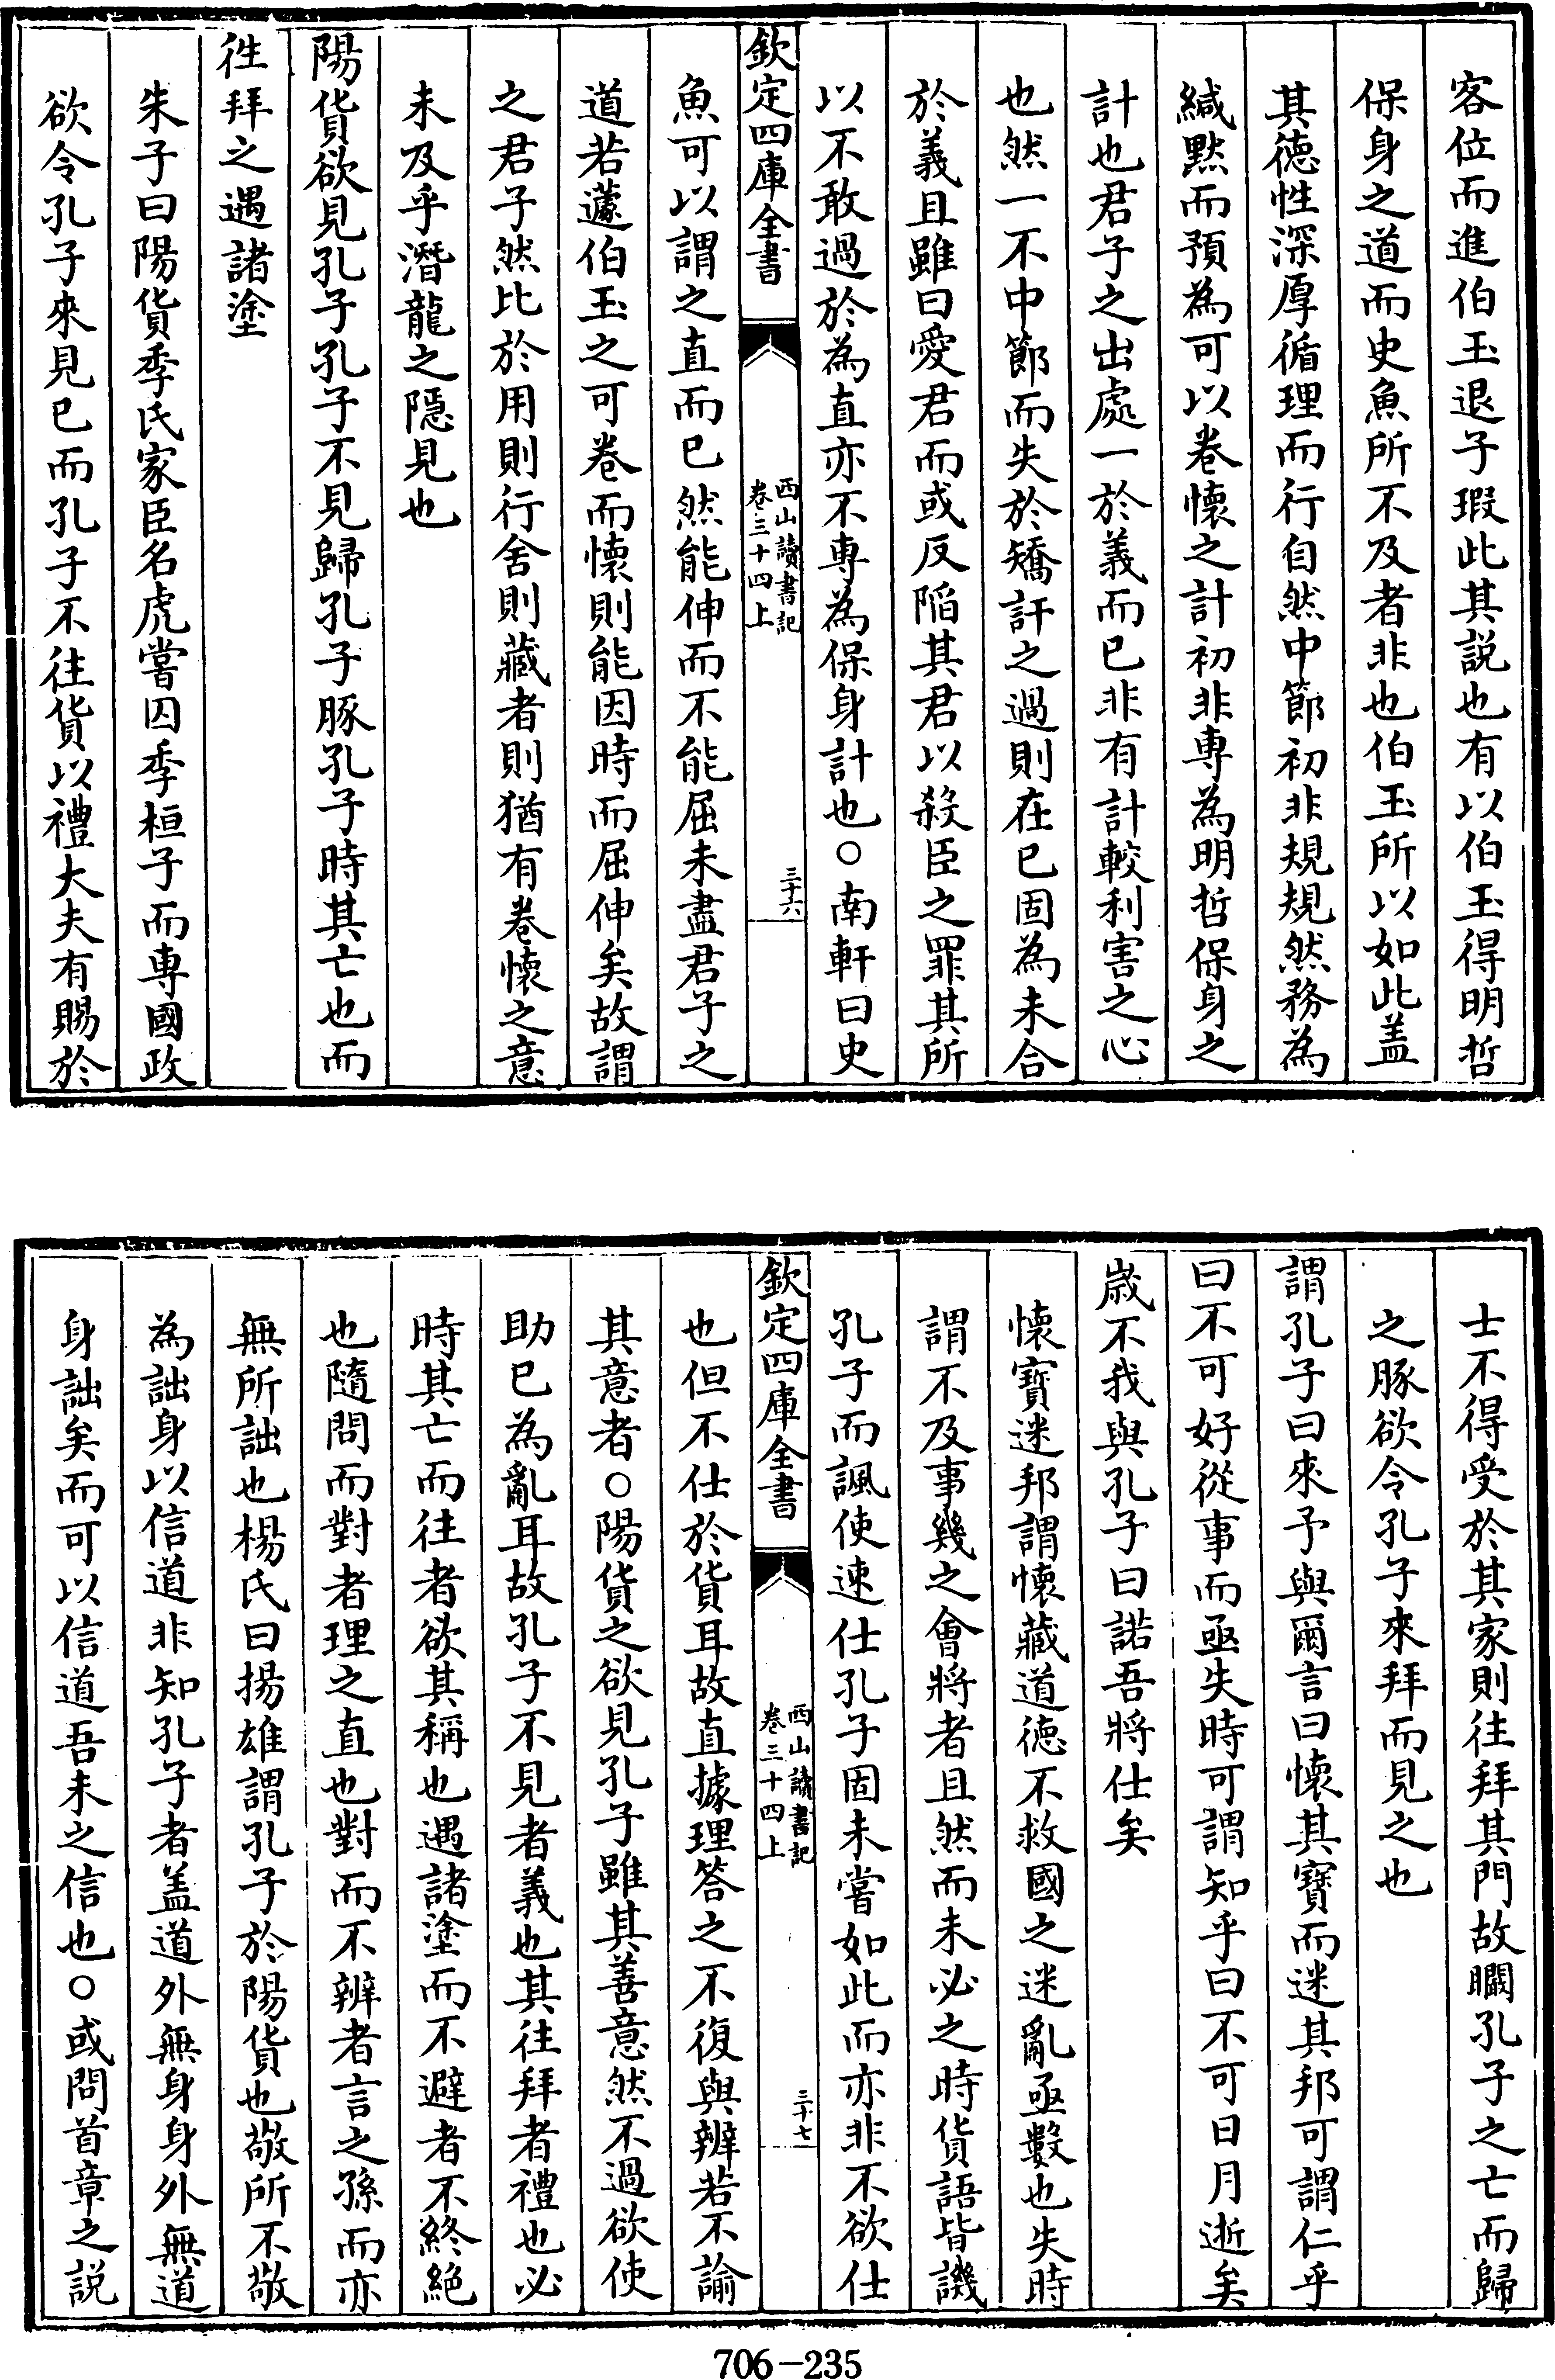 客位而進伯玉退子瑕此其説也有以伯玉得明哲
保身之道而史魚所不及者非也伯玉所以如此盖
其徳性深厚循理而行自然中節初非規規然務為
緘黙而預為可以卷懐之計初非専為明哲保身之
計也君子之出處一於義而已非有計較利害之心
也然一不中節而失於矯訐之過則在已固為未合
於義且雖曰愛君而或反陷其君以殺臣之罪其所
以不敢過於為直亦不専為保身計也○南軒曰史
欽定四庫全書
西山讀書記
卷三十四上
三十六
魚可以謂之直而已然能伸而不能屈未盡君子之
道若蘧伯玉之可卷而懐則能因時而屈伸矣故謂
之君子然比於用則行舍則藏者則猶有卷懐之意
未及乎潛龍之隠見也
陽貨欲見孔子孔子不見歸孔子豚孔子時其亡也而
徃拜之遇諸塗
朱子曰陽貨季氏家臣名虎嘗囚季桓子而専國政
欲令孔子來見已而孔子不往貨以禮大夫有賜於
士不得受於其家則往拜其門故矙孔子之亡而歸
之豚欲令孔子來拜而見之也
謂孔子曰來予與爾言曰懐其寳而迷其邦可謂仁乎
曰不可好從事而亟失時可謂知乎曰不可日月逝矣
歳不我與孔子曰諾吾將仕矣
懐寳迷邦謂懐藏道徳不救國之迷亂亟數也失時
謂不及事幾之會將者且然而未必之時貨語皆譏
孔子而諷使速仕孔子固未嘗如此而亦非不欲仕
欽定四庫全書
西山讀書記
卷三十四上
三十七
也但不仕於貨耳故直據理答之不復與辨若不諭
其意者○陽貨之欲見孔子雖其善意然不過欲使
助已為亂耳故孔子不見者義也其往拜者禮也必
時其亡而往者欲其稱也遇諸塗而不避者不終絶
也隨問而對者理之直也對而不辨者言之孫而亦
無所詘也楊氏曰揚雄謂孔子於陽貨也敬所不敬
為詘身以信道非知孔子者盖道外無身身外無道
身詘矣而可以信道吾未之信也○或問首章之説
706-235